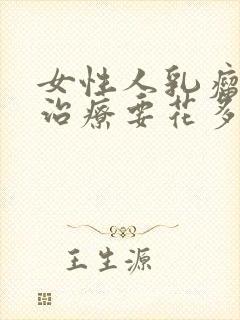 女性人乳瘤
治療要花多
王生源